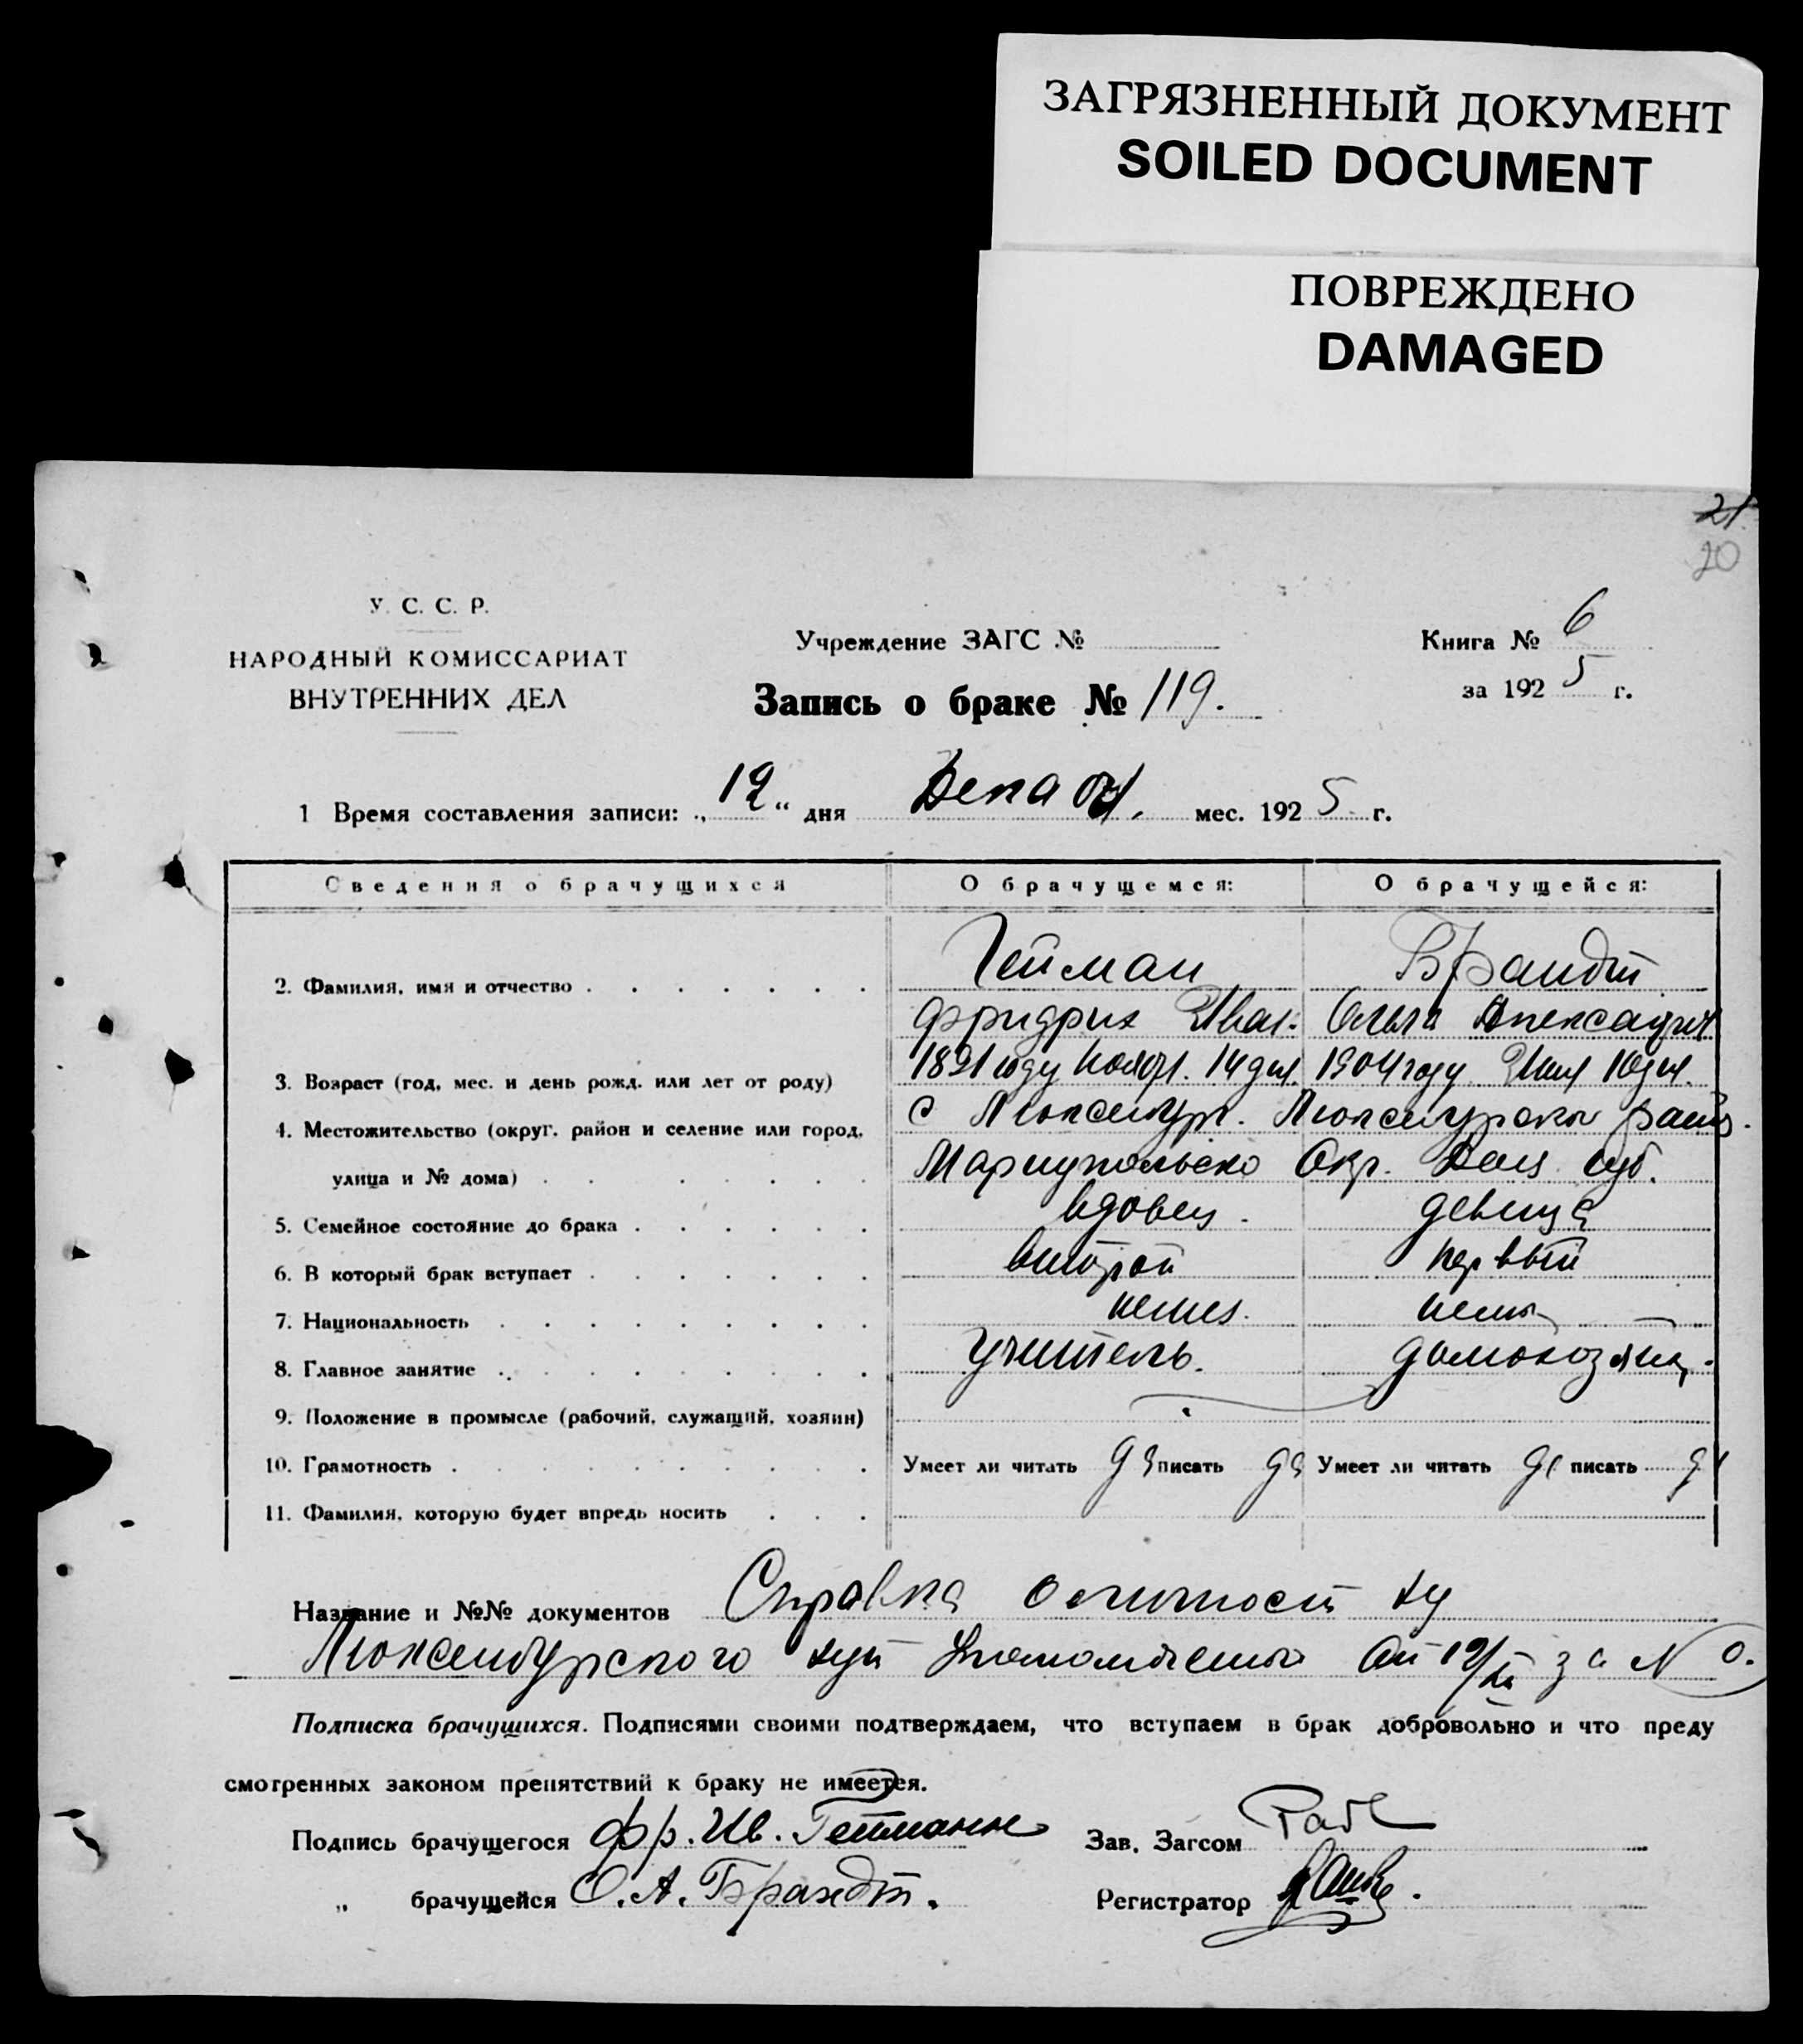 ЗАГРЯЗНЕННЫЙ ДОКУМЕНТ
SOILED DOCUMENT
ПОВРЕЖДЕНО
DAMAGED
21
20
У. С. С. Р.
НАРОДНЫЙ КОМИССАРИАТ
ВНУТРЕННИХ ДЕЛ
Учреждение ЗАГС №
Запись о браке № 119.
Книга № 6
за 192 5 г.
1 Время составления записи: „ 12 “ дня Декабр. мес. 192 5 г.
Сведения о брачущихся О брачущемся: О брачущейся:
2. Фамилия, имя и отчество Гейман Брандт
Фридрих Иван. Ольга
3. Возраст (год, мес. и день рожд. или лет от роду) 1891 году Ноябр. 14 дня. 1904 году 10 дня.
4. Местожительство (округ, район и селение или город, с Люксембург. Люксембурска район.
улица и № дома) Мариупольско Окр. Дон. губ.
5. Семейное состояние до брака вдовец. девица
6. В который брак вступает второй первый
7. Национальность немец. немка
8. Главное занятие Учитель. домохозяйк.
9. Положение в промысле (рабочий, служащий, хозяин)
10. Грамотность Умеет ли читать да писать да Умеет ли читать да писать да
11. Фамилия, которую будет впредь носить
Название и №№ документов Справка о личност
Люксембурского от 12/XII за N 0.
Подписка брачущихся. Подписями своими подтверждаем, что вступаем в брак добровольно и что преду
смотренных законом препятствий к браку не имеется.
Подпись брачущегося Фр. Ив. Гейманн Зав. Загсом
„ брачущейся О. А. Брандт. Регистратор